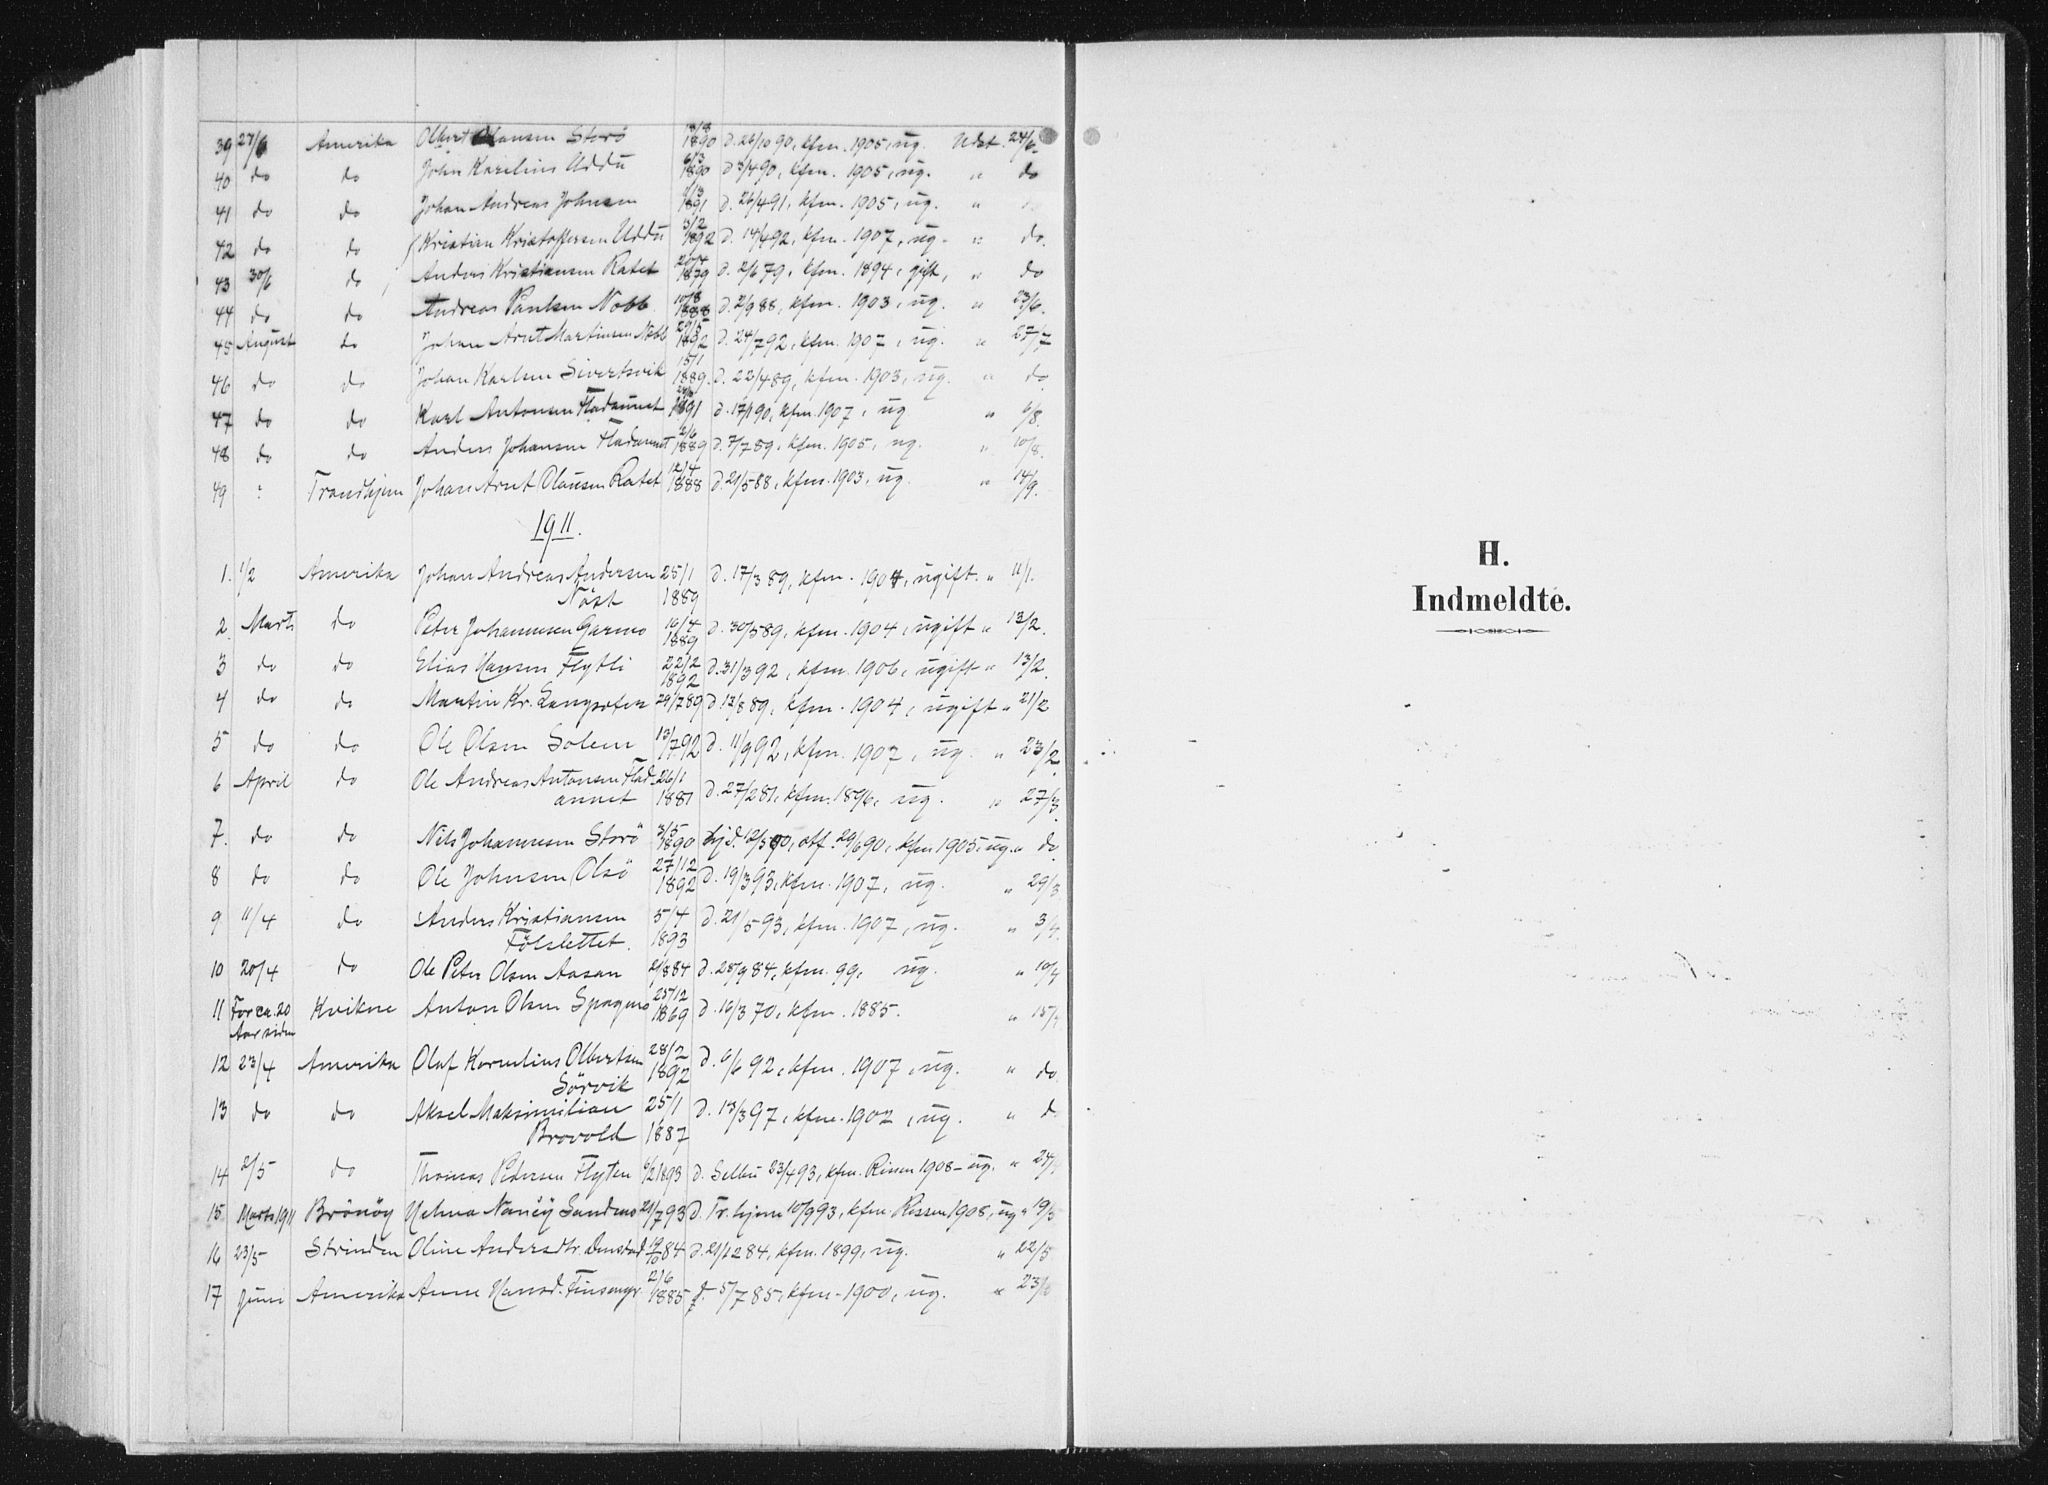 39 27/6 Amerika Olbert Hansen Storö 18/8 1890 d. 26/10 90, kfm. 1905, ug. Udst. 24/6.
40 do do John Karelius Uddu 6/3 1890 d 3/4 90, kfm. 1905, ug. " do
41 do do Johan Andreas Johnsen 1891 d. 26/4 91, kfm. 1905, ug. "
42 do do Kristian Kristoffersen Uddu 3/2 1892 d. 14/4 92, kfm. 1907, ug. " do.
43 30/6 do Anders Kristiansen Ratet 20/4 1879 d. 2/6 79, kfm. 1894, gift, " do
44 do do Andreas Paulsen Nobb 10/8 1888 d. 2/9 88, kfm. 1903, ug. " 23/6.
45 August do Johan Arnt Martinsen Nobb 29/5 1892 d. 24/7 92, kfm. 1907, ug. " 27/7
46 do do Johan Karlsen Sivertsvik 15/1 1889. d. 22/4 89, kfm. 1903, ug. " do.
47 do do Karl Antonsen Fladaunet 1891 d. kfm. 1907, ug " 6/8.
48 do do Anders Johansen Fladaunet 2/6 1889 d. 7/7 89, kfm. 1905, ug. " 10/8.
49 Trondhjem Johan Arnt Olausen Ratet 12/4 1888 d. 21/5 88, kfm. 1903, ug. " 14/9.
1911.
1. 1/2 Amerika Johan Andreas Andersen 25/1 d. 17/3 89, kfm. 1904, ugift. " 11/1.
Näst 1889
2. Marts do Peter Johannesen Garmo 16/4 1889 d. 30/5 89, kfm. 1904, ugift " 13/2.
3 do do Elias Hansen Flytli 22/2 1892 d. 31/3 92, kfm. 1906, ugift " 13/2.
4 do do Martin Kr. Langsæter 29/7 89 d 13/8 89, kfm. 1904, ugift " 21/2
5 do do Ole Olsen Solem 13/7 92 d. 11/9 92, kfm. 1907, ug. " 23/2.
6 April do Ole Andreas Antonsen Flad- 26/1
aunet 1881 d. 27/2 81, kfm. 1896, ug. " 27/3.
7. do do Nils Johannesen Storö 3/5 1890 hjd. 12/5 90, stf. 29/6 90, kfm 1905, ug. " do.
8 do do Ole Johnsen Olsö 27/12 1892 d. 19/3 93, kfm. 1907, ug. " 29/3
9 11/4 do Anders Kristiansen 5/4 d. 21/5 93, kfm. 1907, ug. " 3/4.
Fölslettet. 1893
10 20/4 do Ole Peter Olsen Aasan 21/8 84 d. 28/9 84, kfm. 99, ug. " 10/4
11 For ca. 20 Kvikne Anton Olsen Spagmo 25/12 1869 d. 16/3 70, kfm. 1885. " 15/4
Aar siden
12 23/4 Amerika Olaf Kornelius Olbertsen 28/2 1892 d. 6/6 92, kfm. 1907, ug. " do.
Sörvik
13 do do Aksel Maksimilian 25/1 d. 13/3 97, kfm. 1902, ug. " d.
Brovold 1887
14 2/5 do Thomas Pedersen Flyten 6/2 1893 d. Selbu 23/4 93, kfm. Rissen 1908 - ug. " 24/4
15 Marts 1911 Brönöy Helma Nancy Sandmo 21/7 93 d. Tr.hjem 10/9 93, kfm. Rissen 1908, ug " 19/5
16 23/5 Strinden Oline Andersdtr. Denstad 19/10 84 d. 21/12 84, kfm. 1899, ug. " 22/5.
17 Juni Amerika Anne Hansd. Finsmyr. 2/6 1885 d. 5/7 85, kfm. 1900, ug. "
H.
Indmeldte.